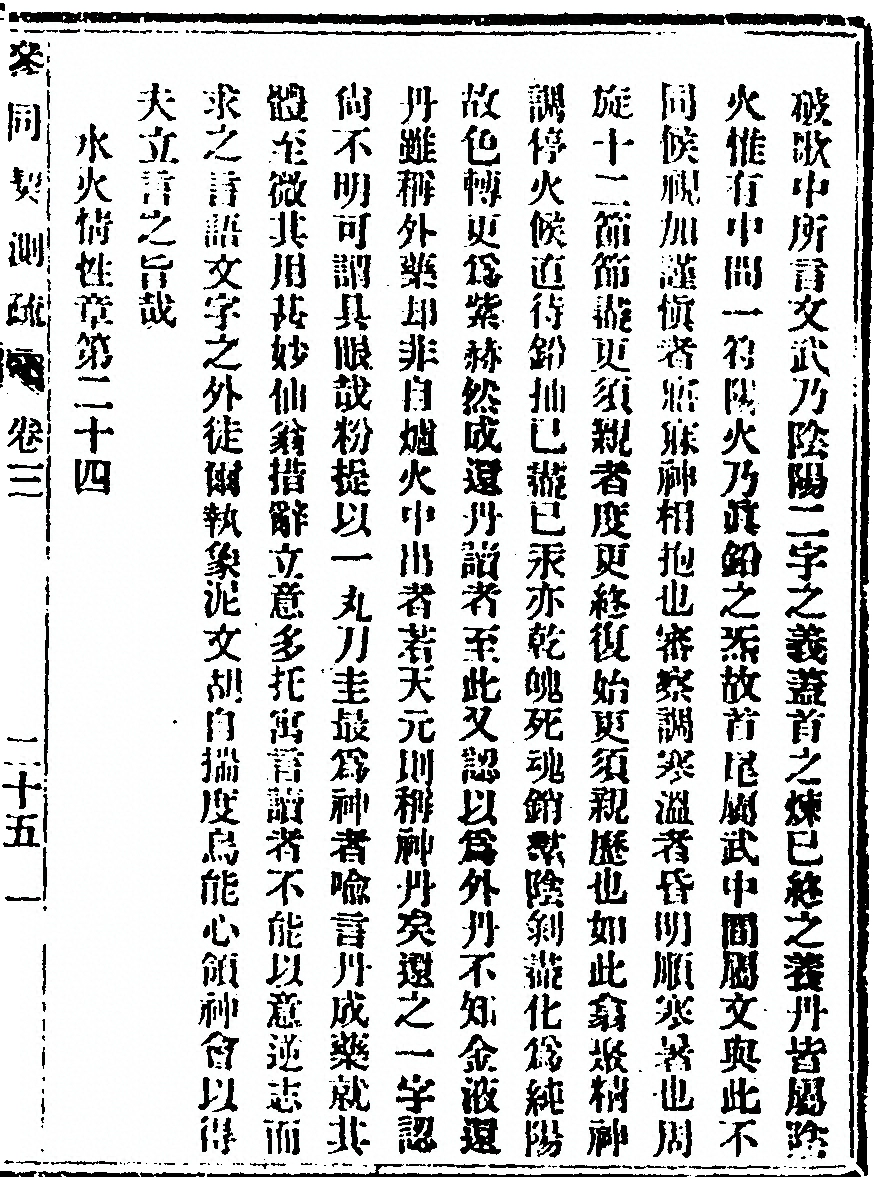 破歌中所言文武乃陰陽二字之義蓋首之煉己終之養丹皆屬陰
火惟有中間一符陽火乃眞鉛之炁故首尾屬武中間屬文與此不
同候視加謹愼者寤寐神相抱也審察調寒溫者昏明順寒暑也周
旋十二節節盡更須親者度更終復始更須親歷也如此翕聚精神
調停火候直待鉛抽已盡己汞亦乾魄死魂銷羣陰剝盡化爲純陽
故色轉更爲紫赫然成還丹讀者至此又認以爲外丹不知金液還
丹雖稱外藥却非自爐火中出者若天元則稱神丹矣還之一字認
尙不明可謂具眼哉粉提以一丸刀圭最爲神者喻言丹成藥就其
體至微其用甚妙仙翁措辭立意多托寓言讀者不能以意逆志而
求之言語文字之外徒爾執象泥文胡自揣度烏能心領神會以得
夫立言之旨哉
水火情性章第二十四
參同契測疏 卷三 二十五